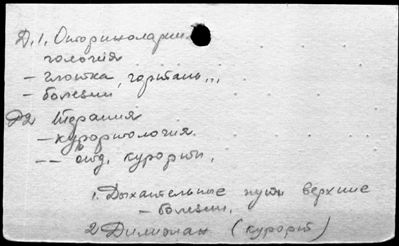 Д.1. Оториноларин
гология
- глотка, гортань,,,
- болезни
Д2 Терапия
- курортология.
-- отд. курорты,
1. Дыхательные пути верхние
- болезни,
2 Дилижан (курорт)